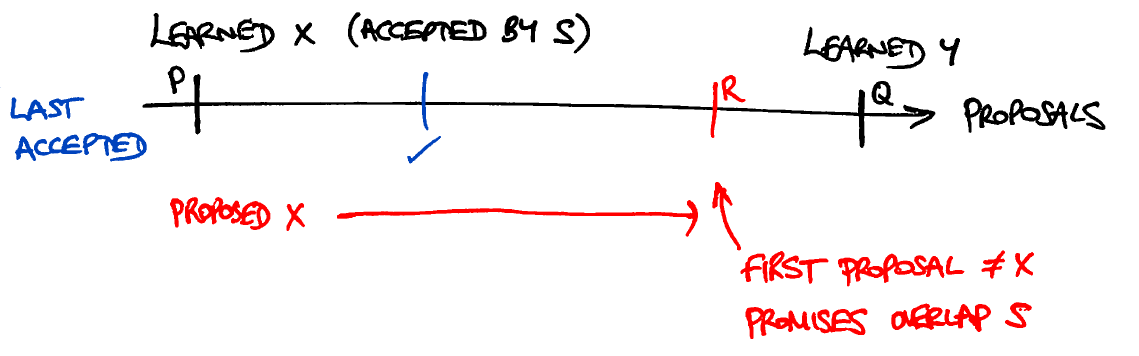 LEARNED X (ACCEPTED BY S)
LEARNED Y
P
R
Q
LAST
ACCEPTED
PROPOSALS
PROPOSED X
FIRST PROPOSAL ≠ X
PROMISES OVERLAP S